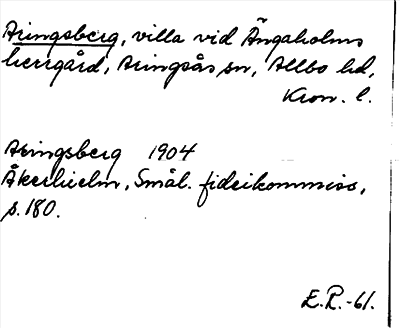 Aringsberg, villa vid Ängaholms
herrgård, Aringsås sn, Allbo hd,
Kron. l.
Aringsberg 1904
Åkerhielm, Smål. fideikommiss,
s. 180.
E.P.-61.